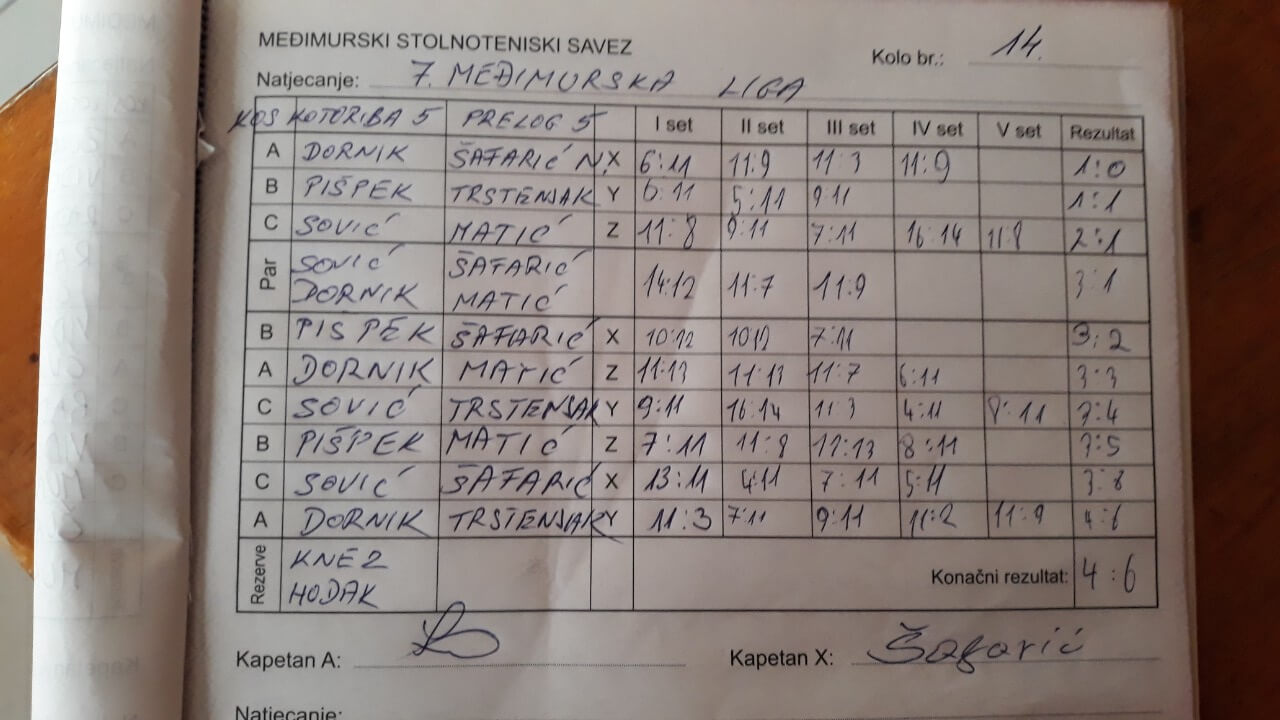 MEĐIMURSKI STOLNOTENISKI SAVEZ
Kolo br.: 14.
Natjecanje: 7. MEĐIMURSKA LIGA
KOS KOTORIBA 5 PRELOG 5 I set II set III set IV set V set Rezultat
A DORNIK ŠAFARIĆ N. X 6:11 11:9 11:3 11:9 1:0
B PIŠPEK TRSTENJAK Y 6:11 5:11 9:11 1:1
C SOVIĆ MATIĆ Z 11:8 9:11 7:11 16:14 11:8 2:1
Par SOVIĆ ŠAFARIĆ
DORNIK MATIĆ 14:12 11:7 11:9 3:1
B PISPEK ŠAFARIĆ X 10:12 10:12 7:11 3:2
A DORNIK MATIĆ Z 11:13 11:13 11:7 6:11 3:3
C SOVIĆ TRSTENJAK Y 9:11 16:14 11:3 4:11 8:11 3:4
B PIŠPEK MATIĆ Z 7:11 11:8 12:13 8:11 3:5
C SOVIĆ ŠAFARIĆ X 13:11 4:11 7:11 5:11
A DORNIK TRSTENJAK Y 11:3 7:11 9:11 11:2 11:9 4:6
Rezerve KNEZ
HODAK
Konačni rezultat: 4:6
Kapetan A:
Kapetan X: Šafarić
Natjecanje: